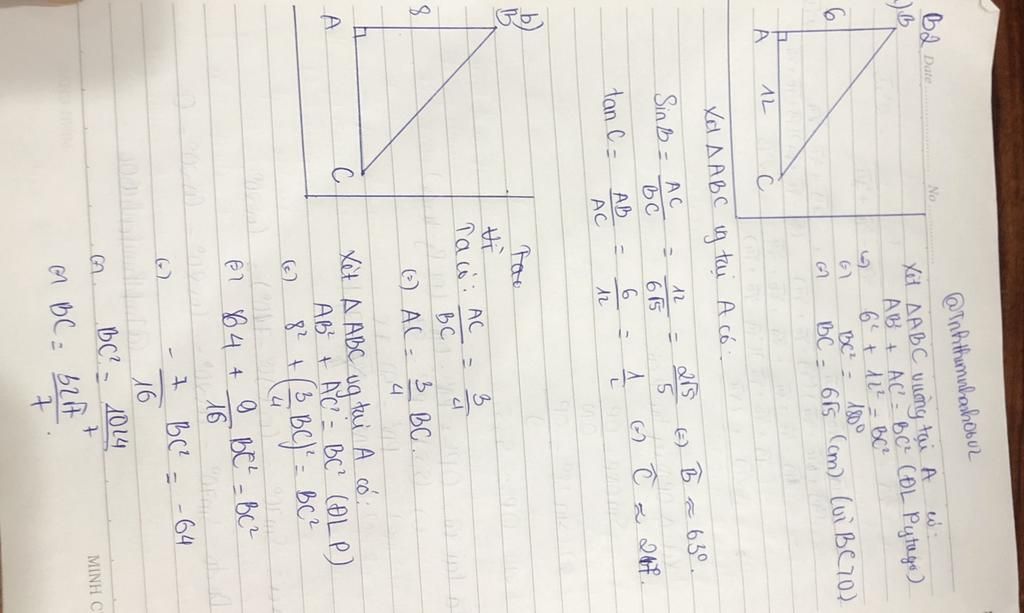 B2
Date No
a) B
6
A 12 C
Xét ΔABC vuông tại A có:
AB² + AC² = BC² (ĐL Pytago)
(=) 6² + 12² = BC²
(=) BC² = 180
(=) BC = 6√5 (cm) (vì BC>0)
Xét ΔABC vg tại A có:
SinB = AC/BC = 12/6√5 = 2√5/5 (=) B̂ ≈ 63°.
tanC = AB/AC = 6/12 = 1/2 (=) Ĉ ≈ 27°.
b)
B
8
A C
Ta có
Vì
Ta có: AC/BC = 3/4
(=) AC = 3/4 BC.
Xét ΔABC vg tại A có:
AB² + AC² = BC² (ĐL P)
(=) 8² + (3/4 BC)² = BC²
(=) 64 + 9/16 BC² = BC²
(=) -7/16 BC² = -64
(=) BC² = 1024/7
(=) BC = 32√7/7.
MINH C